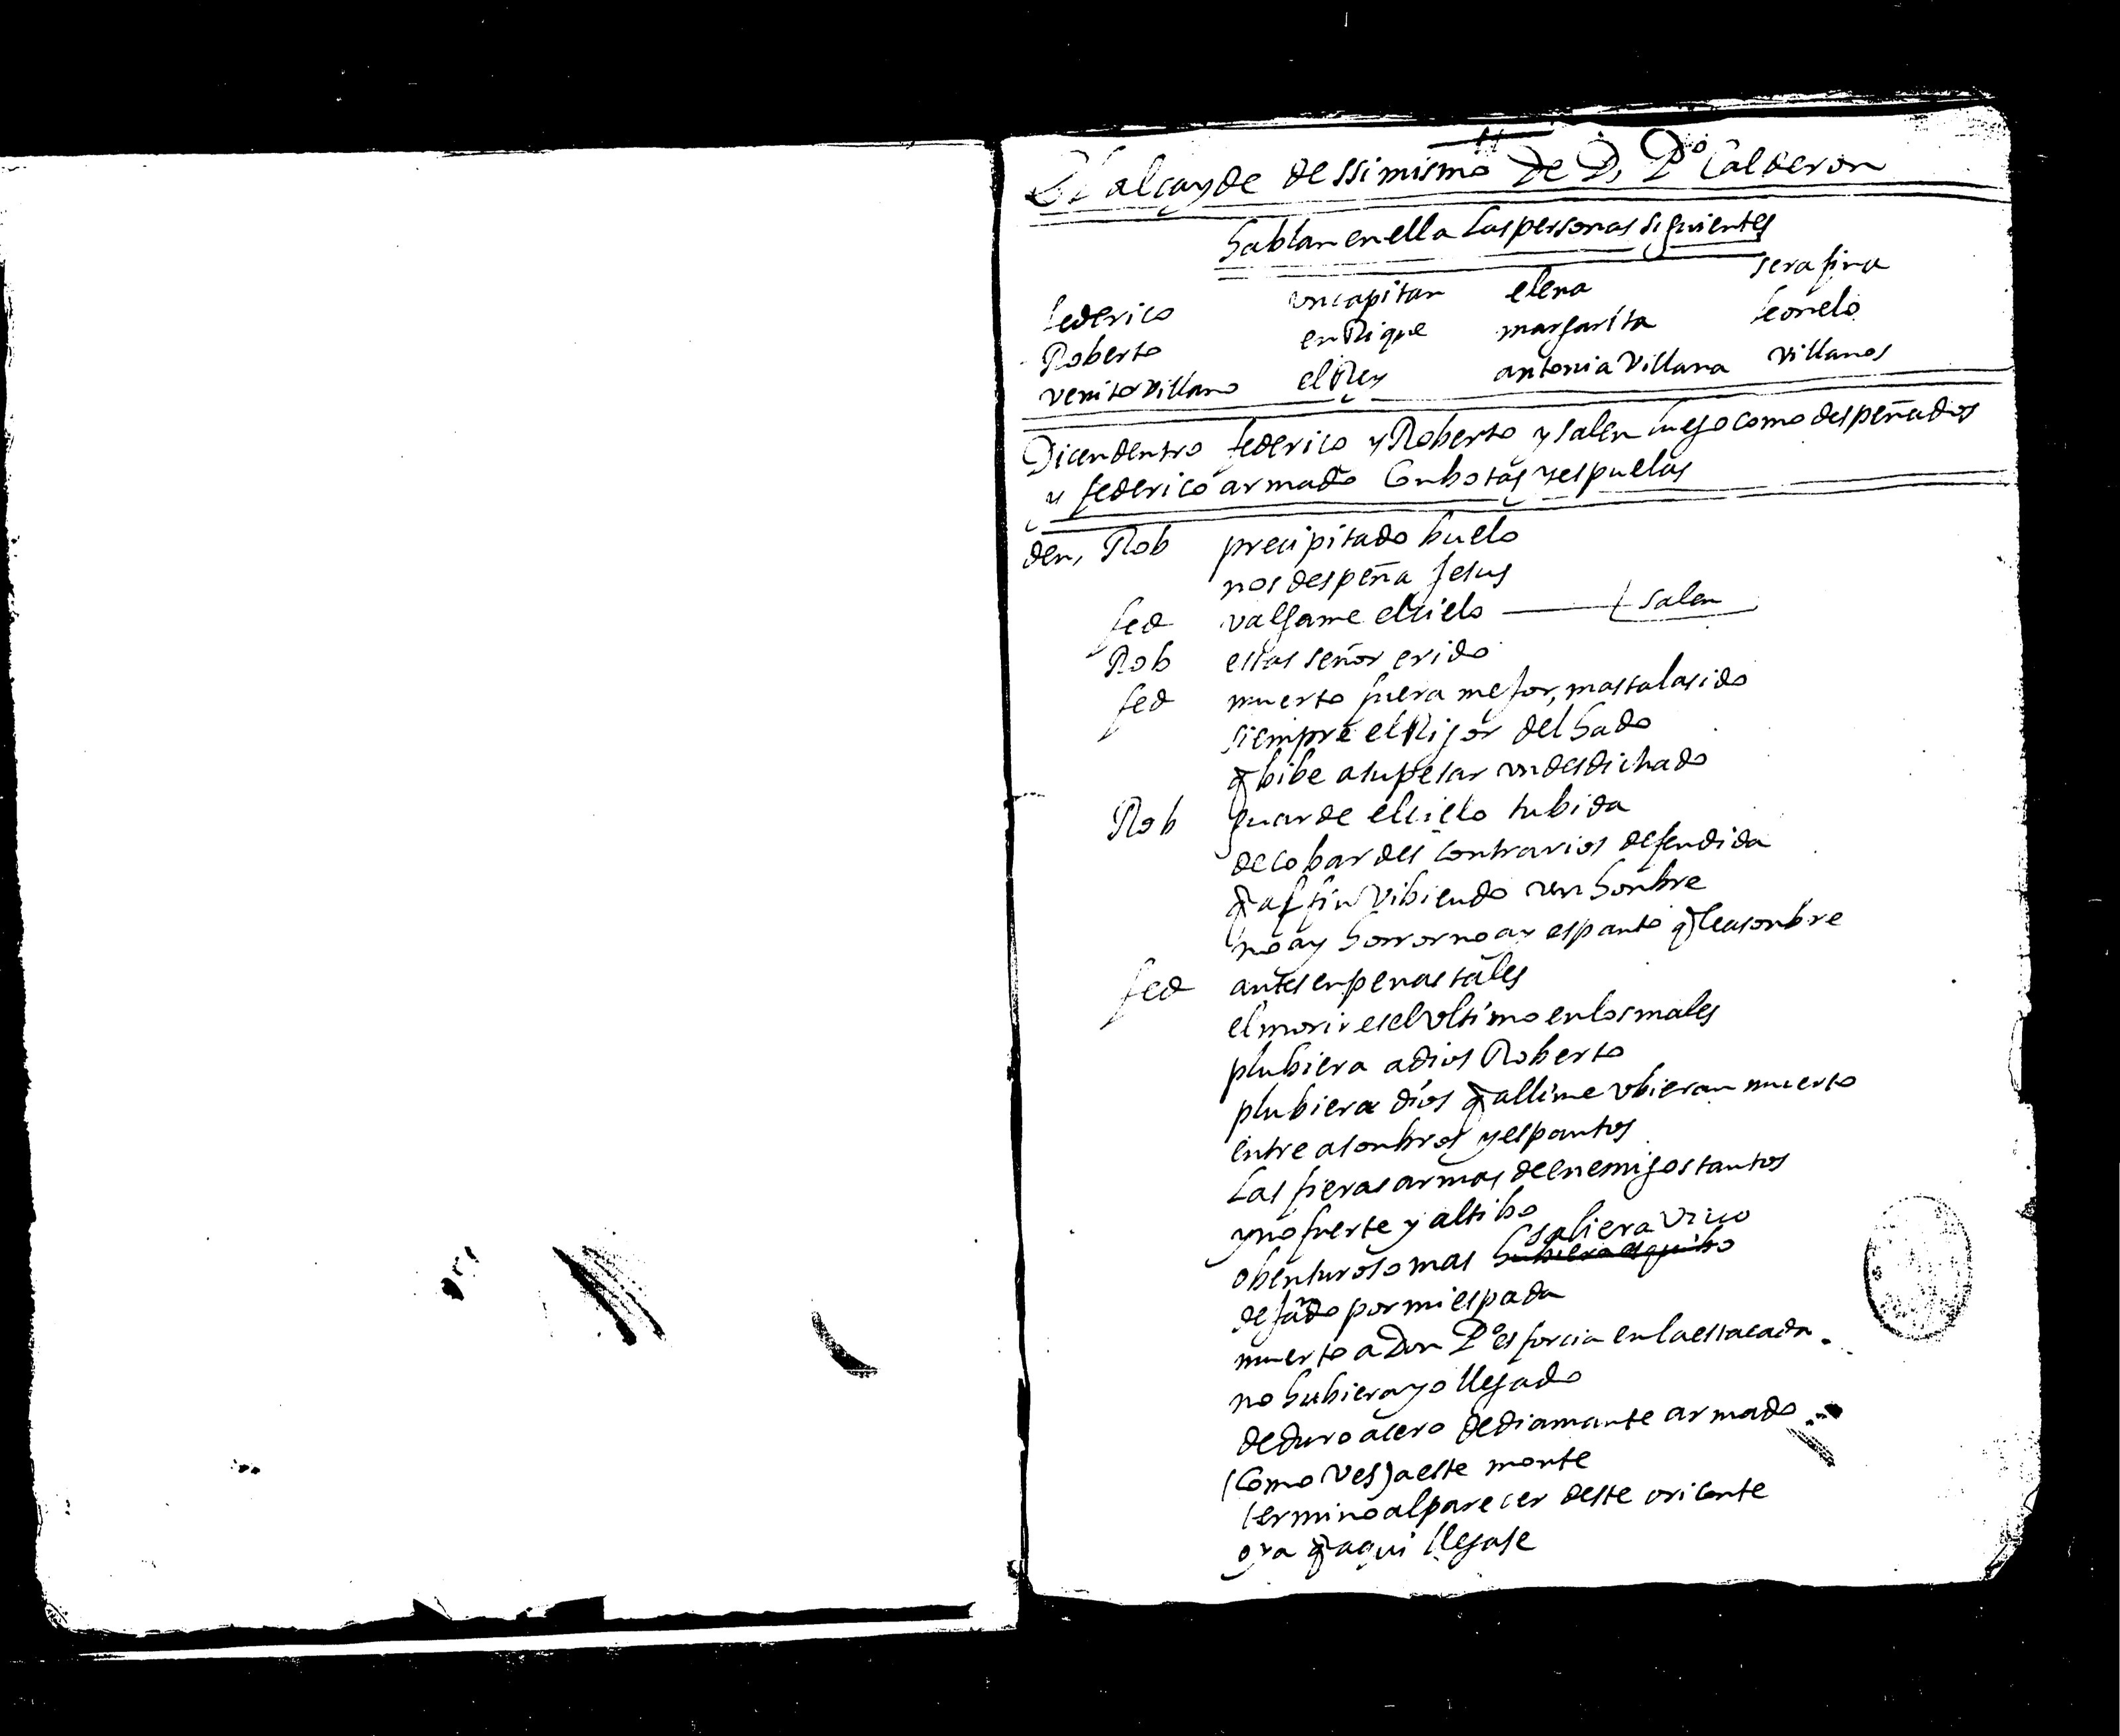 El alcayde dessimismo de D, Pº Calderon
hablan en ella las personas siguientes
federico un capitan elena serafina
Roberto enRique margarita leonelo
venito villano el Rey antonia villana villanos
Dicen dentro federico y Roberto y salen luego como despeñados
y federico armado Con botas y espuelas
den, Rob precipitado buelo
nos despeña Jesus
fed valgame el cielo salen
Rob estas señor erido
fed muerto fuera mejor, mas tal a sido
siempre el Rigor del hado
q bibe a su pesar un desdichado
Rob guarde el cielo tu bida
de cobardes contrarios defendida
q al fin vibiendo un honbre
no ay horror no ay espanto q le asonbre
fed antes en penas tales
el morir es el ultimo en los males
plubiera a dios Roberto
plubiera dios q alli me ubieran muerto
entre asonbros y espantos
las fieras armas de enemigos tantos
y no fuerte y altibo
saliera vivo
o benturoso mas hubiera esquibo
dejãdo por mi espada
muerto a Don Pº esforcia en la estacada.
no hubiera yo llegado
de duro acero de diamante armado
(Como ves) a este monte
termino al parecer deste oriconte
oxa q aqui llegase